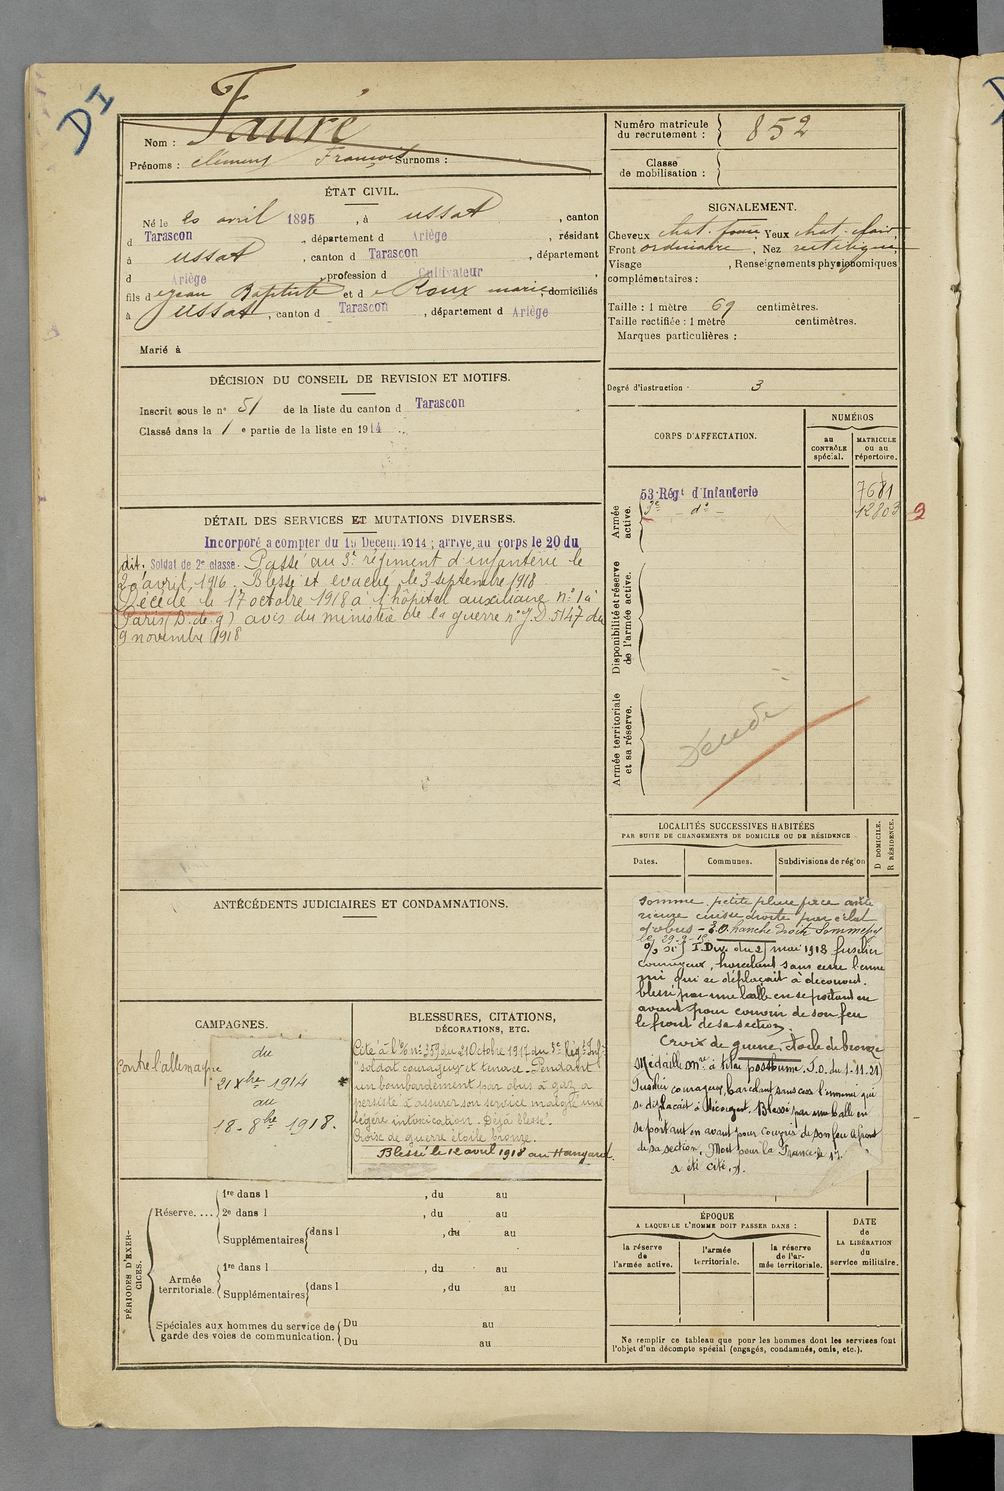 DI
Fauré
Nom :
Prénoms : Clément François Surnoms :
ÉTAT CIVIL.
Né le 20 avril 1895, à Ussat, canton
d Tarascon, département d Ariège, résidant
à Ussat, canton d Tarascon, département
d Ariège, profession d Cultivateur,
fils d e Jean Baptiste et d e Roux Marie, domiciliés
à Ussat, canton d Tarascon, département d Ariège
Marié à
DÉCISION DU CONSEIL DE REVISION ET MOTIFS.
Inscrit sous le n° 51 de la liste du canton d Tarascon
Classé dans la 1 e partie de la liste en 1914
DÉTAIL DES SERVICES ET MUTATIONS DIVERSES.
Incorporé a compter du 19 Décem. 1914 ; arrivé, au corps le 20 du
dit. Soldat de 2e classe. Passé au 3e régiment d'infanterie le
20 avril 1916. Blessé et évacué le 3 septembre 1918
Décédé le 17 octobre 1918 à l'hôpital auxiliaire n° 1 à
Paris (D. de g) avis du ministre de la guerre n° J.D. 5147 du
9 novembre 1918
ANTÉCÉDENTS JUDICIAIRES ET CONDAMNATIONS.
CAMPAGNES.
contre l'allemagne
du
21 Xbre 1914
au
18. 8bre 1918.
BLESSURES, CITATIONS,
DÉCORATIONS, ETC.
Cité à l'% n° 359 du 21 Octobre 1917 du 3e Régt Inf.
"soldat courageux et tenace. Pendant
un bombardement par obus à gaz a
persisté à assurer son service malgré une
légère intoxication. Déjà blessé".
Croix de guerre étoile bronze.
Blessé le 12 avril 1918 au Hangard.
PÉRIODES D'EXERCICES.
Réserve. ...
1re dans l , du au
2e dans l , du au
Supplémentaires dans l , du au
Armée
territoriale.
1re dans l , du au
Supplémentaires dans l , du au
Spéciales aux hommes du service de
garde des voies de communication.
Du au
Du au
Numéro matricule
du recrutement : 852
Classe
de mobilisation :
SIGNALEMENT.
Cheveux chat. foncé, Yeux chat. clair,
Front ordinaire, Nez rectiligne
Visage , Renseignements physionomiques
complémentaires :
Taille : 1 mètre 69 centimètres.
Taille rectifiée : 1 mètre centimètres.
Marques particulières :
Degré d'instruction 3
CORPS D'AFFECTATION.
NUMÉROS
au
CONTRÔLE
spécial.
MATRICULE
ou au
répertoire.
Armée
active.
53e Régt d'Infanterie 7681
3e — d° — 12803
9
Disponibilité et réserve
de l'armée active.
Armée territoriale
et sa réserve.
Décédé
LOCALITÉS SUCCESSIVES HABITÉES
PAR SUITE DE CHANGEMENTS DE DOMICILE OU DE RÉSIDENCE
Dates.
Communes.
Subdivisions de région
D DOMICILE.
R RÉSIDENCE.
Somme. petite plaie face anté
rieure cuisse droite par éclat
d'obus - hanche droite Sommepy
le 29-9-18
I. Div. du 25 mai 1918 fusilier
courageux, harcelant sans cesse l'enne
mi qui se déplaçait à découvert.
blessé par une balle en se portant en
avant pour couvrir de son feu
le front de sa section.
Croix de guerre, étoile de bronze
Médaille mre à titre posthume. J.O. du 1-11-21)
Fusilier courageux, harcelant sans cesse l'ennemi qui
se déplaçait à découvert. Blessé par une balle en
se portant en avant pour couvrir de son feu le front
de sa section. Mort pour la France le 17.
a été cité.
ÉPOQUE
A LAQUELLE L'HOMME DOIT PASSER DANS :
la réserve
de
l'armée active.
l'armée
territoriale.
la réserve
de l'ar-
mée territoriale.
DATE
de
LA LIBÉRATION
du
service militaire.
Ne remplir ce tableau que pour les hommes dont les services font
l'objet d'un décompte spécial (engagés, condamnés, omis, etc.).